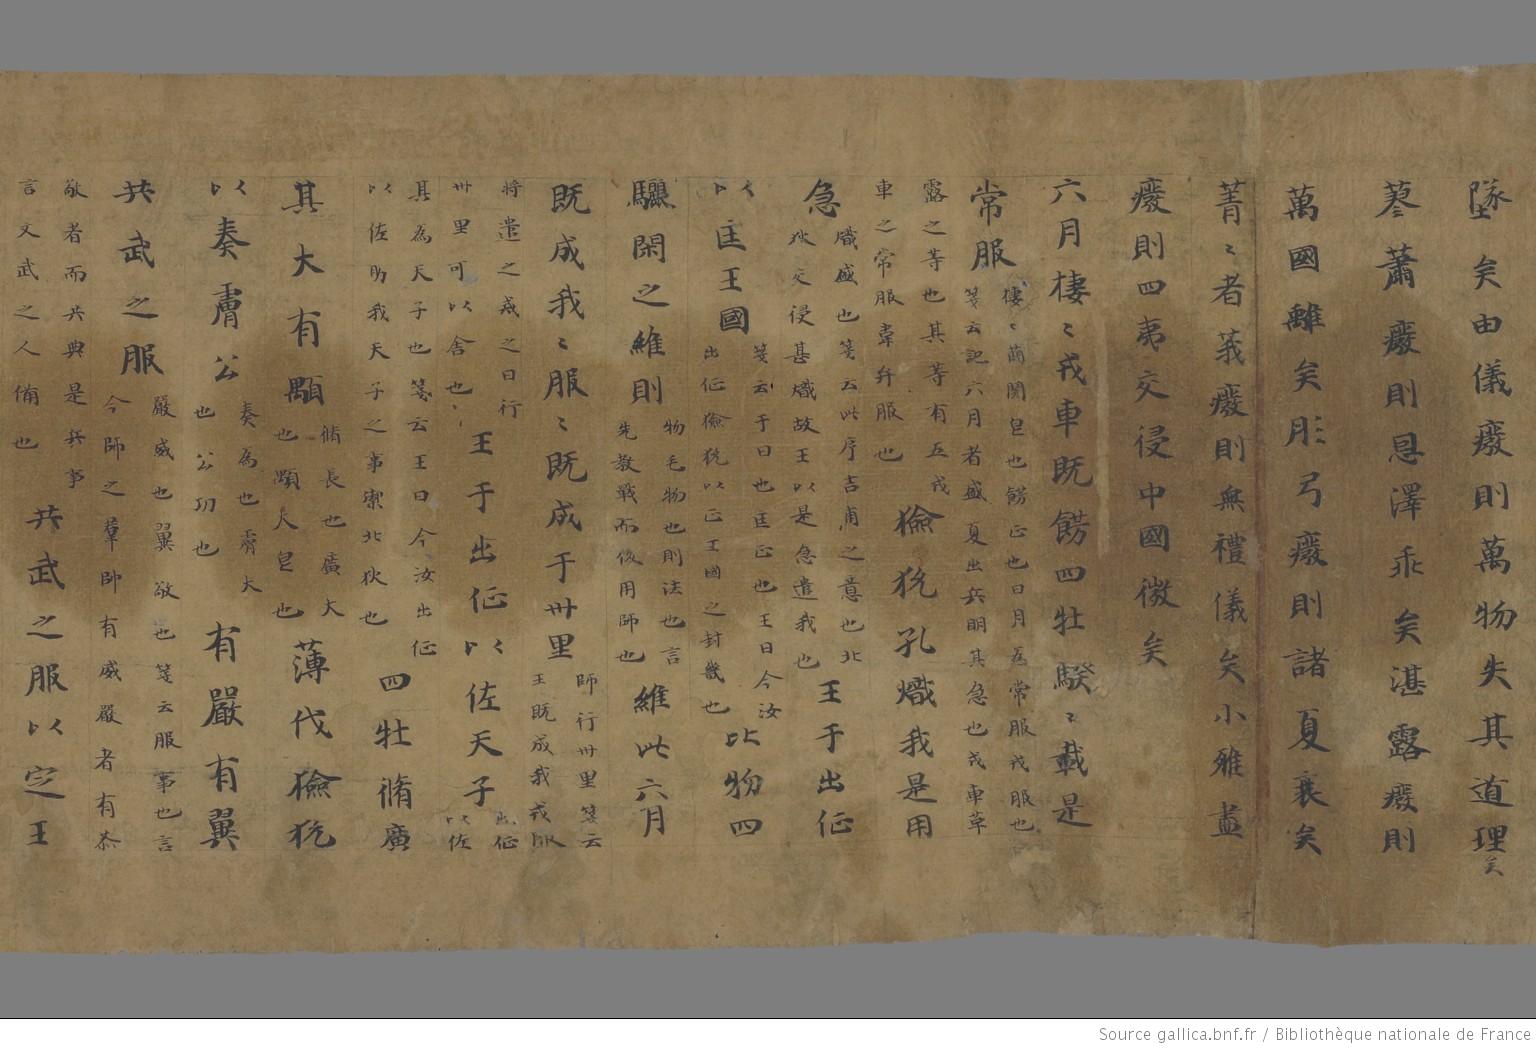 墜矣由儀癈則萬物失其道理矣
蓼蕭癈則恩澤乖矣湛露癈則
萬國離矣彤弓癈則諸夏衰矣
菁〻者莪癈則無禮儀矣小雅盡
癈則四夷交侵中國微矣
六月棲〻戎車既飭四牡騤〻載是
常服
棲〻蕳閱皃也飭正也日月為常服戎服也
箋云記六月者盛夏出兵明其急也戎車革
露之等也其等有五戎
車之常服韋弁服也
獫狁孔熾我是用
急
熾盛也箋云此序吉甫之意也北
狄交侵甚熾故王以是急遣我也
王于出征
以匡王國
箋云于曰也匡正也王曰今汝
出征獫狁以正王國之封畿也
比物四
驪閑之維則
物毛物也則法也言
先教戰而後用師也
維此六月
既成我〻服〻既成于卅里
師行卅里箋云
王既成我戎服
將遣之戒之日行
卅里可以舍也
王于出征以佐天子
出征以佐
其為天子也箋云王曰今汝出征
以佐助我天子之事禦北狄也
四牡脩廣
其大有顒
脩長也廣大也
顒大皃也
薄伐獫狁
以奏膚公
奏為也膚大
也公功也
有嚴有翼
共武之服
嚴威也翼敬也箋云服事也言
今師之羣帥有威嚴者有恭
敬者而共典是兵事
言文武之人備也
共武之服以定王